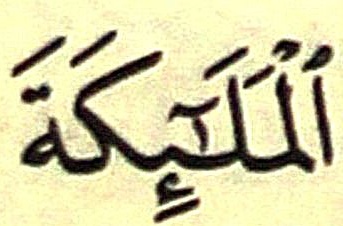 ٱلْمَلَٰٓئِكَةَ